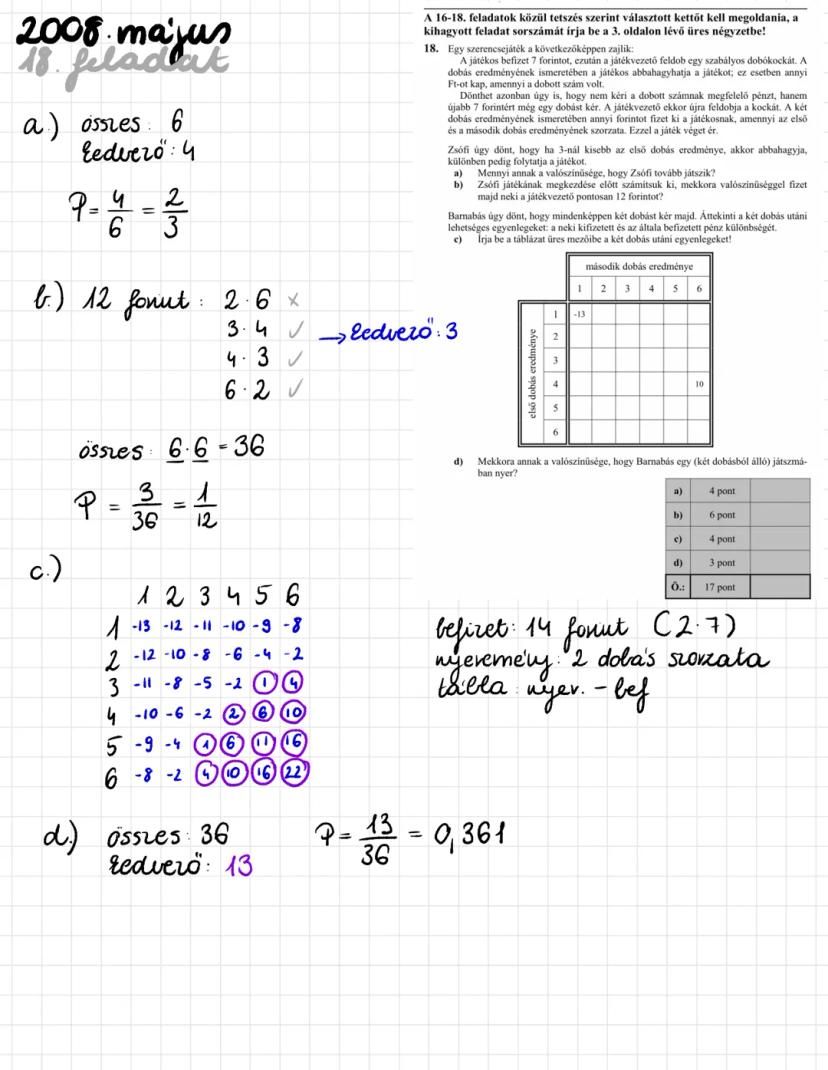 2008. május
18. feladat
a.) összes: 6
kedvező: 4
P = 4/6 = 2/3
b.) 12 forint: 2·6 ×
3·4 ✓
4·3 ✓
6·2 ✓
→ kedvező: 3
összes: 6·6 = 36
P = 3/36 = 1/12
c.)
1 2 3 4 5 6
1 -13 -12 -11 -10 -9 -8
2 -12 -10 -8 -6 -4 -2
3 -11 -8 -5 -2 1 4
4 -10 -6 -2 2 6 10
5 -9 -4 1 6 11 16
6 -8 -2 4 10 16 22
d.) összes: 36
kedvező: 13
P = 13/36 = 0,361
A 16-18. feladatok közül tetszés szerint választott kettőt kell megoldania, a
kihagyott feladat sorszámát írja be a 3. oldalon lévő üres négyzetbe!
18. Egy szerencsejáték a következőképpen zajlik:
A játékos befizet 7 forintot, ezután a játékvezető feldob egy szabályos dobókockát. A
dobás eredményének ismeretében a játékos abbahagyhatja a játékot; ez esetben annyi
Ft-ot kap, amennyi a dobott szám volt.
Dönthet azonban úgy is, hogy nem kéri a dobott számnak megfelelő pénzt, hanem
újabb 7 forintért még egy dobást kér. A játékvezető ekkor újra feldobja a kockát. A két
dobás eredményének ismeretében annyi forintot fizet ki a játékosnak, amennyi az első
és a második dobás eredményének szorzata. Ezzel a játék véget ér.
Zsófi úgy dönt, hogy ha 3-nál kisebb az első dobás eredménye, akkor abbahagyja,
különben pedig folytatja a játékot.
a) Mennyi annak a valószínűsége, hogy Zsófi tovább játszik?
b) Zsófi játékának megkezdése előtt számítsuk ki, mekkora valószínűséggel fizet
majd neki a játékvezető pontosan 12 forintot?
Barnabás úgy dönt, hogy mindenképpen két dobást kér majd. Áttekinti a két dobás utáni
lehetséges egyenlegeket: a neki kifizetett és az általa befizetett pénz különbségét.
c) Írja be a táblázat üres mezőibe a két dobás utáni egyenlegeket!
második dobás eredménye
1 2 3 4 5 6
első dobás eredménye
1 -13
2
3
4 10
5
6
d) Mekkora annak a valószínűsége, hogy Barnabás egy (két dobásból álló) játszmá-
ban nyer?
a) 4 pont
b) 6 pont
c) 4 pont
d) 3 pont
Ö.: 17 pont
befizet: 14 forint (2·7)
nyeremény: 2 dobás szorzata
tábla: nyer. - bef